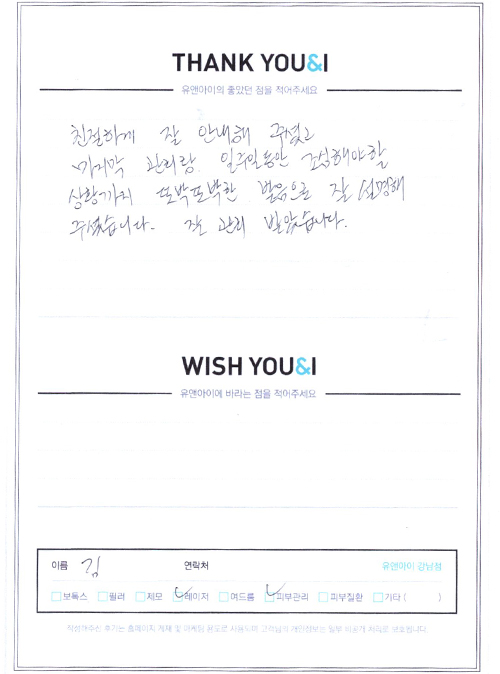 THANK YOU&I
유앤아이의 좋았던 점을 적어주세요
친절하게 잘 안내해 주셨고
마지막 관리랑 일주일동안 조심해야할
상황까지 또박또박한 발음으로 잘 설명해
주셨습니다. 잘 관리 받았습니다.
WISH YOU&I
유앤아이에 바라는 점을 적어주세요
이름 김 연락처 유앤아이 강남점
보톡스 필러 제모 레이저 여드름 피부관리 피부질환 기타 ( )
작성해주신 후기는 홈페이지 게재 및 마케팅 용도로 사용되며 고객님의 개인정보는 일부 비공개 처리로 보호됩니다.